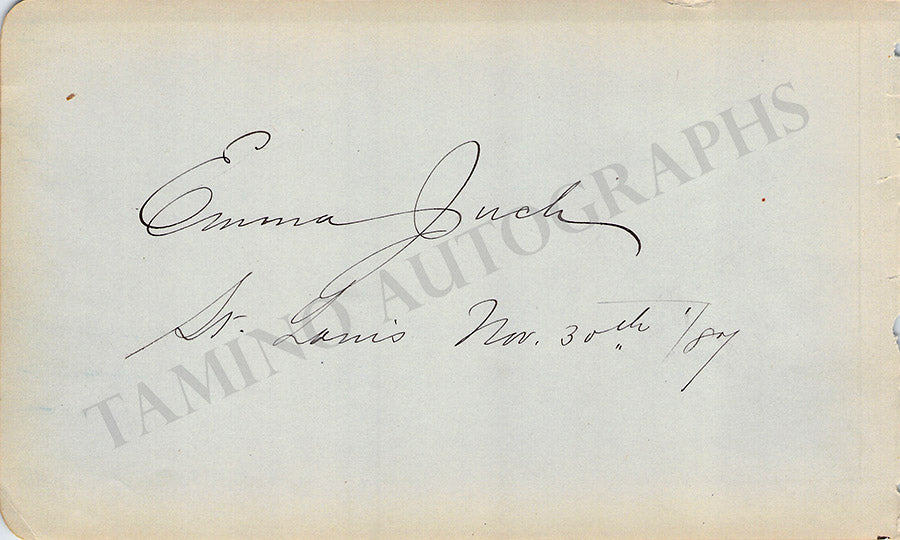 Emma Juch
St. Louis Nov. 30th 1/87
TAMINO AUTOGRAPHS